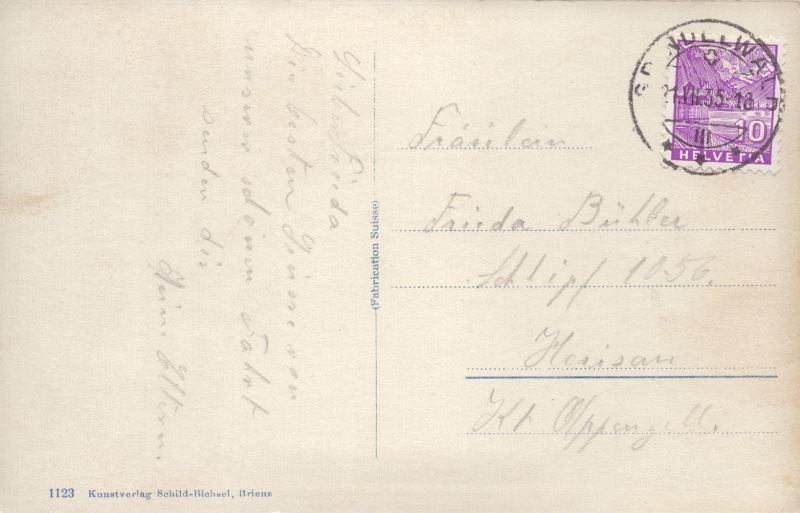 Liebe Frieda
Die besten Grüsse von
unserer schönen Fahrt
senden dir
Deine Eltern.
(Fabrication Suisse)
Fräulein
Frieda Bühler
Schlipf 1056.
Herisau
Kt. Appenzell.
GRINDELWALD
VII.35-18
10
HELVETIA
1123 Kunstverlag Schild-Bichsel, Brienz